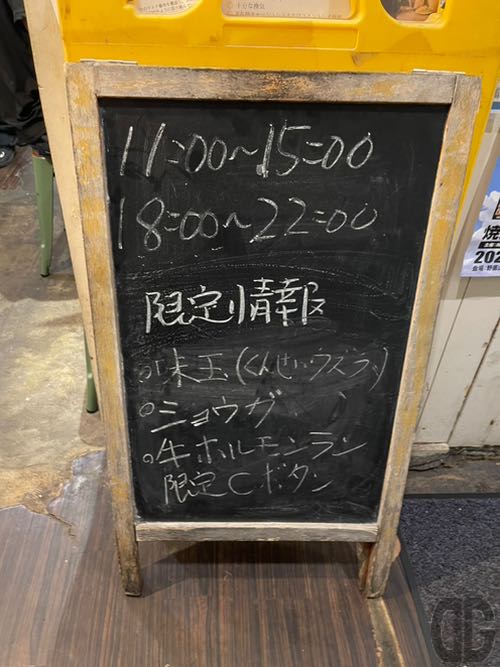 11:00~15:00
18:00~22:00
限定情報
○味玉(くんせいウズラ)
○ショウガ
○牛ホルモンラン
限定Cボタン
焼
202